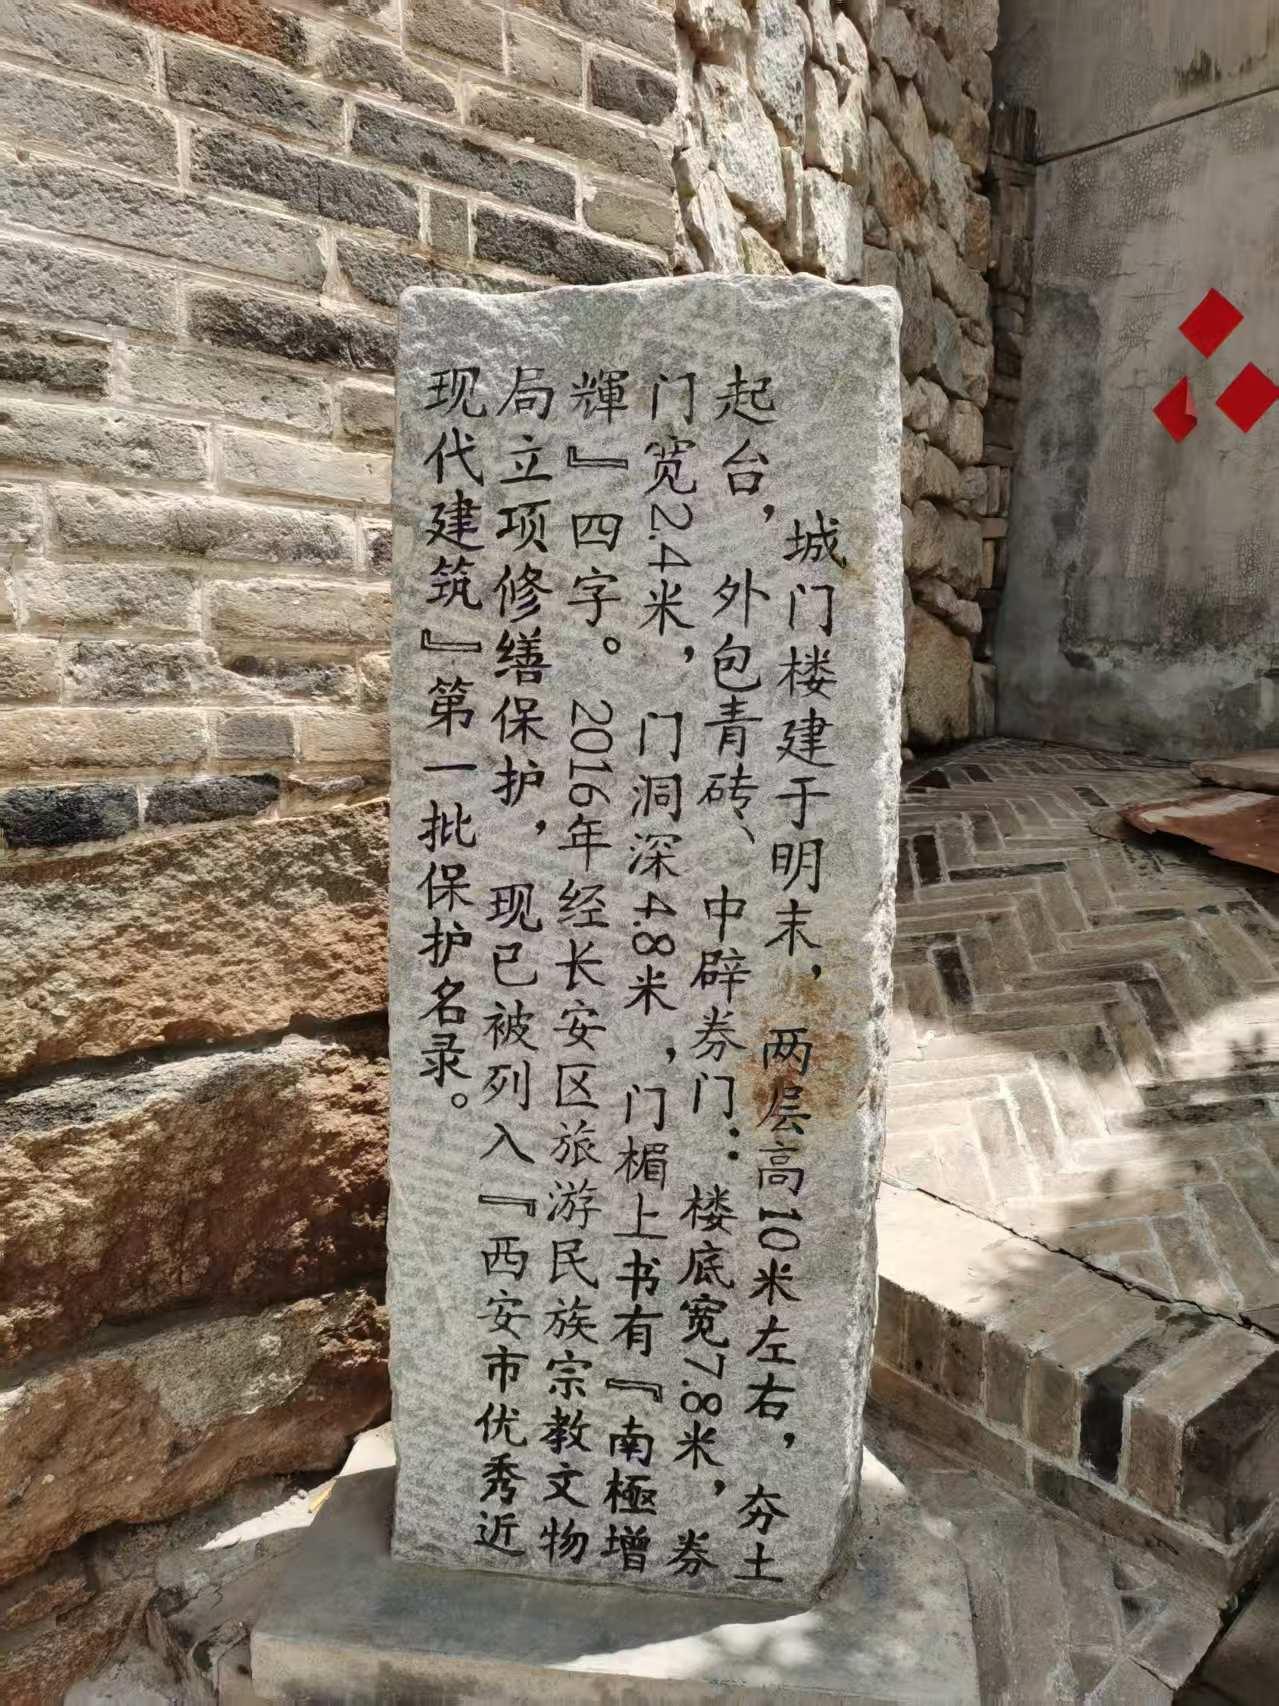 城门楼建于明末，两层高10米左右，夯土
起台，外包青砖、中辟券门：楼底宽7.8米，券
门宽2.4米，门洞深4.8米，门楣上书有『南極增
輝』四字。2016年经长安区旅游民族宗教文物
局立项修缮保护，现已被列入『西安市优秀近
现代建筑』第一批保护名录。